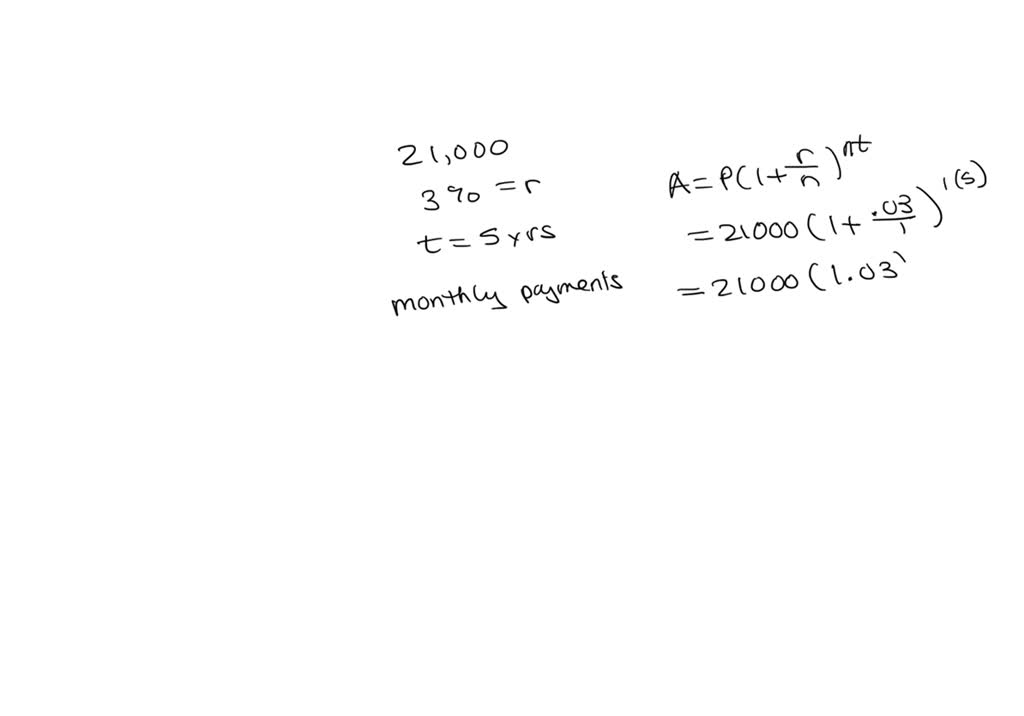 21,000
3% = r
t = 5 yrs
monthly payments
A = P(1 + r/n)^nt
= 21000(1 + .03/1)^1(5)
= 21000(1.03)